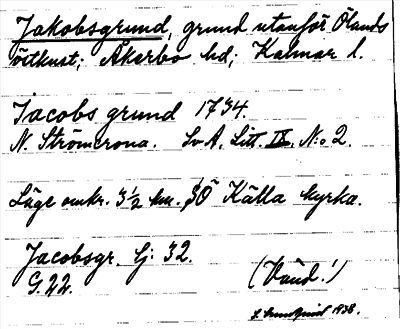 Jakobsgrund, grund utanför Ölands
östkust; Åkerbo hd; Kalmar l.
Jacobs grund 1734.
N. Strömcrona. SvA. Litt. IX. N:o 2.
Läge omkr. 3½ km. SÖ Källa kyrka.
Jacobsgr. Sj: 32.
G. 22. (Vänd!)
1938.